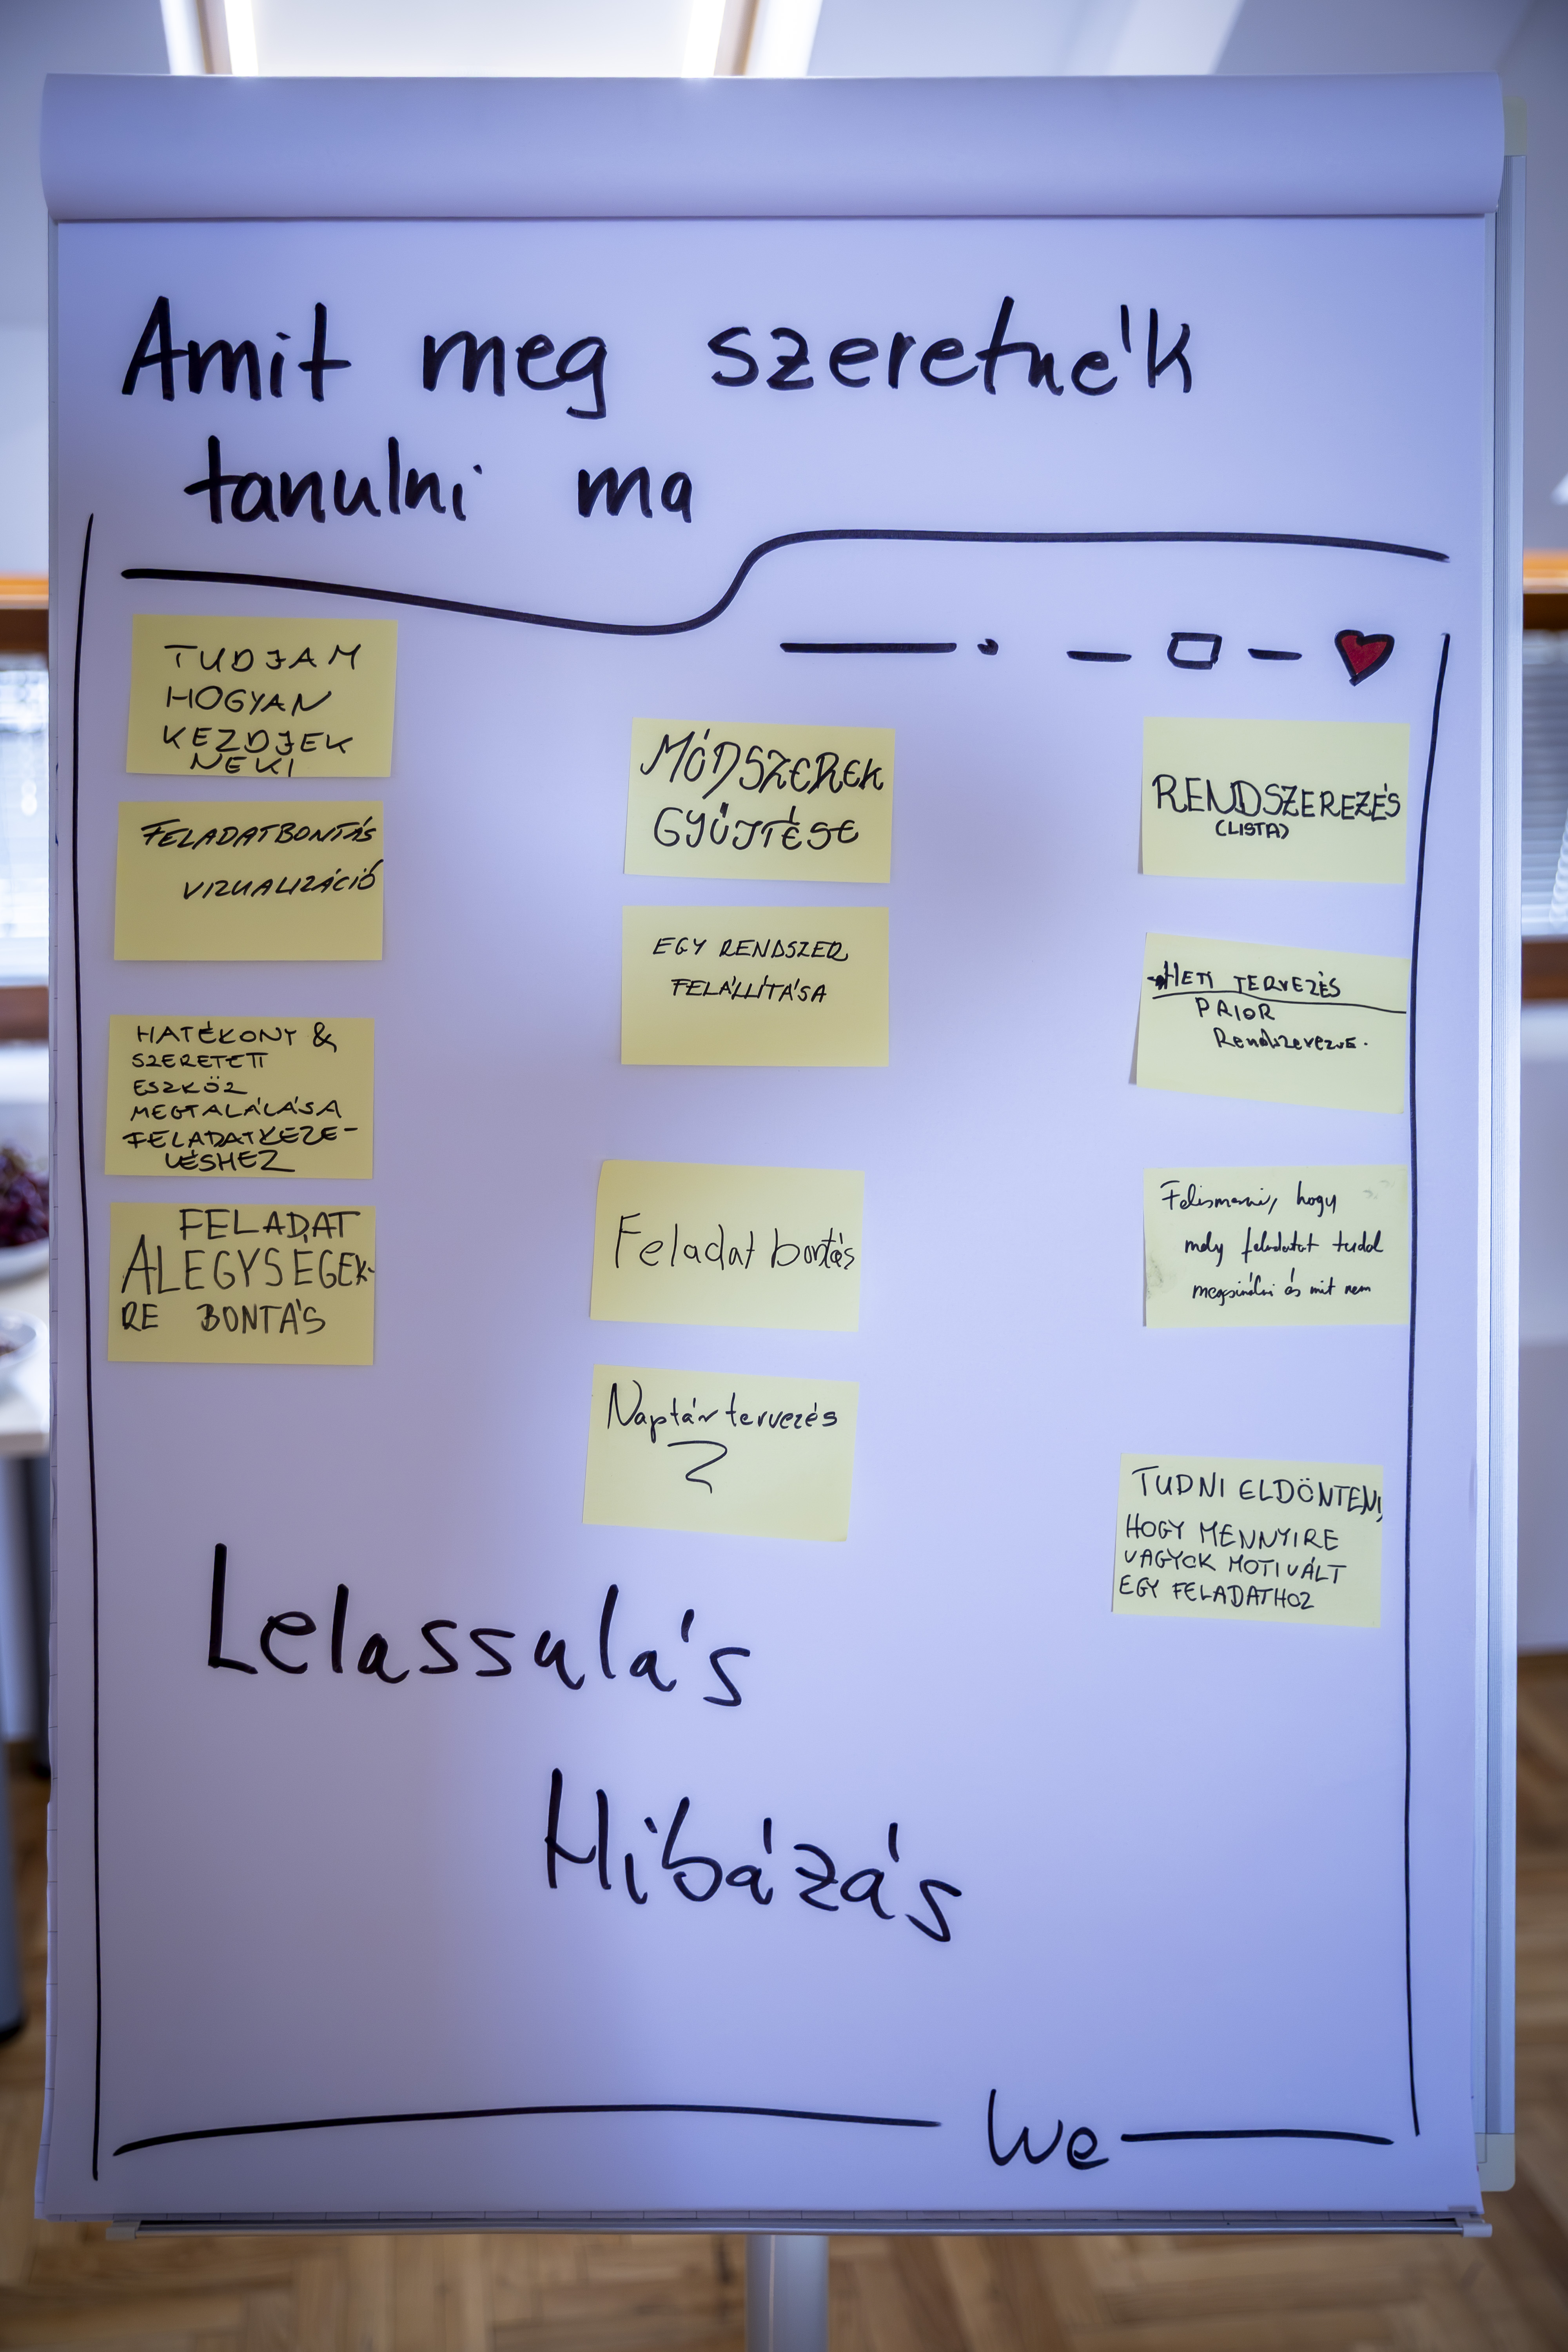 Amit meg szeretnék
tanulni ma
TUDJAM
HOGYAN
KEZDJEK
NEKI
FELADATBONTÁS
VIZUALIZÁCIÓ
HATÉKONY &
SZERETETT
ESZKÖZ
MEGTALÁLÁSA
FELADATKEZE-
LÉSHEZ
FELADAT
ALEGYSÉGEK-
RE BONTÁS
MÓDSZEREK
GYŰJTÉSE
EGY RENDSZER
FELÁLLÍTÁSA
Feladat bontás
Naptár tervezés
RENDSZEREZÉS
(LISTA)
HETI TERVEZÉS
PRIOR
Felismerni, hogy
mely feladatot tudol
megsinálni és mit nem
TUDNI ELDÖNTENI,
HOGY MENNYIRE
VAGYOK MOTIVÁLT
EGY FELADATHOZ
Lelassulás
Hibázás
We